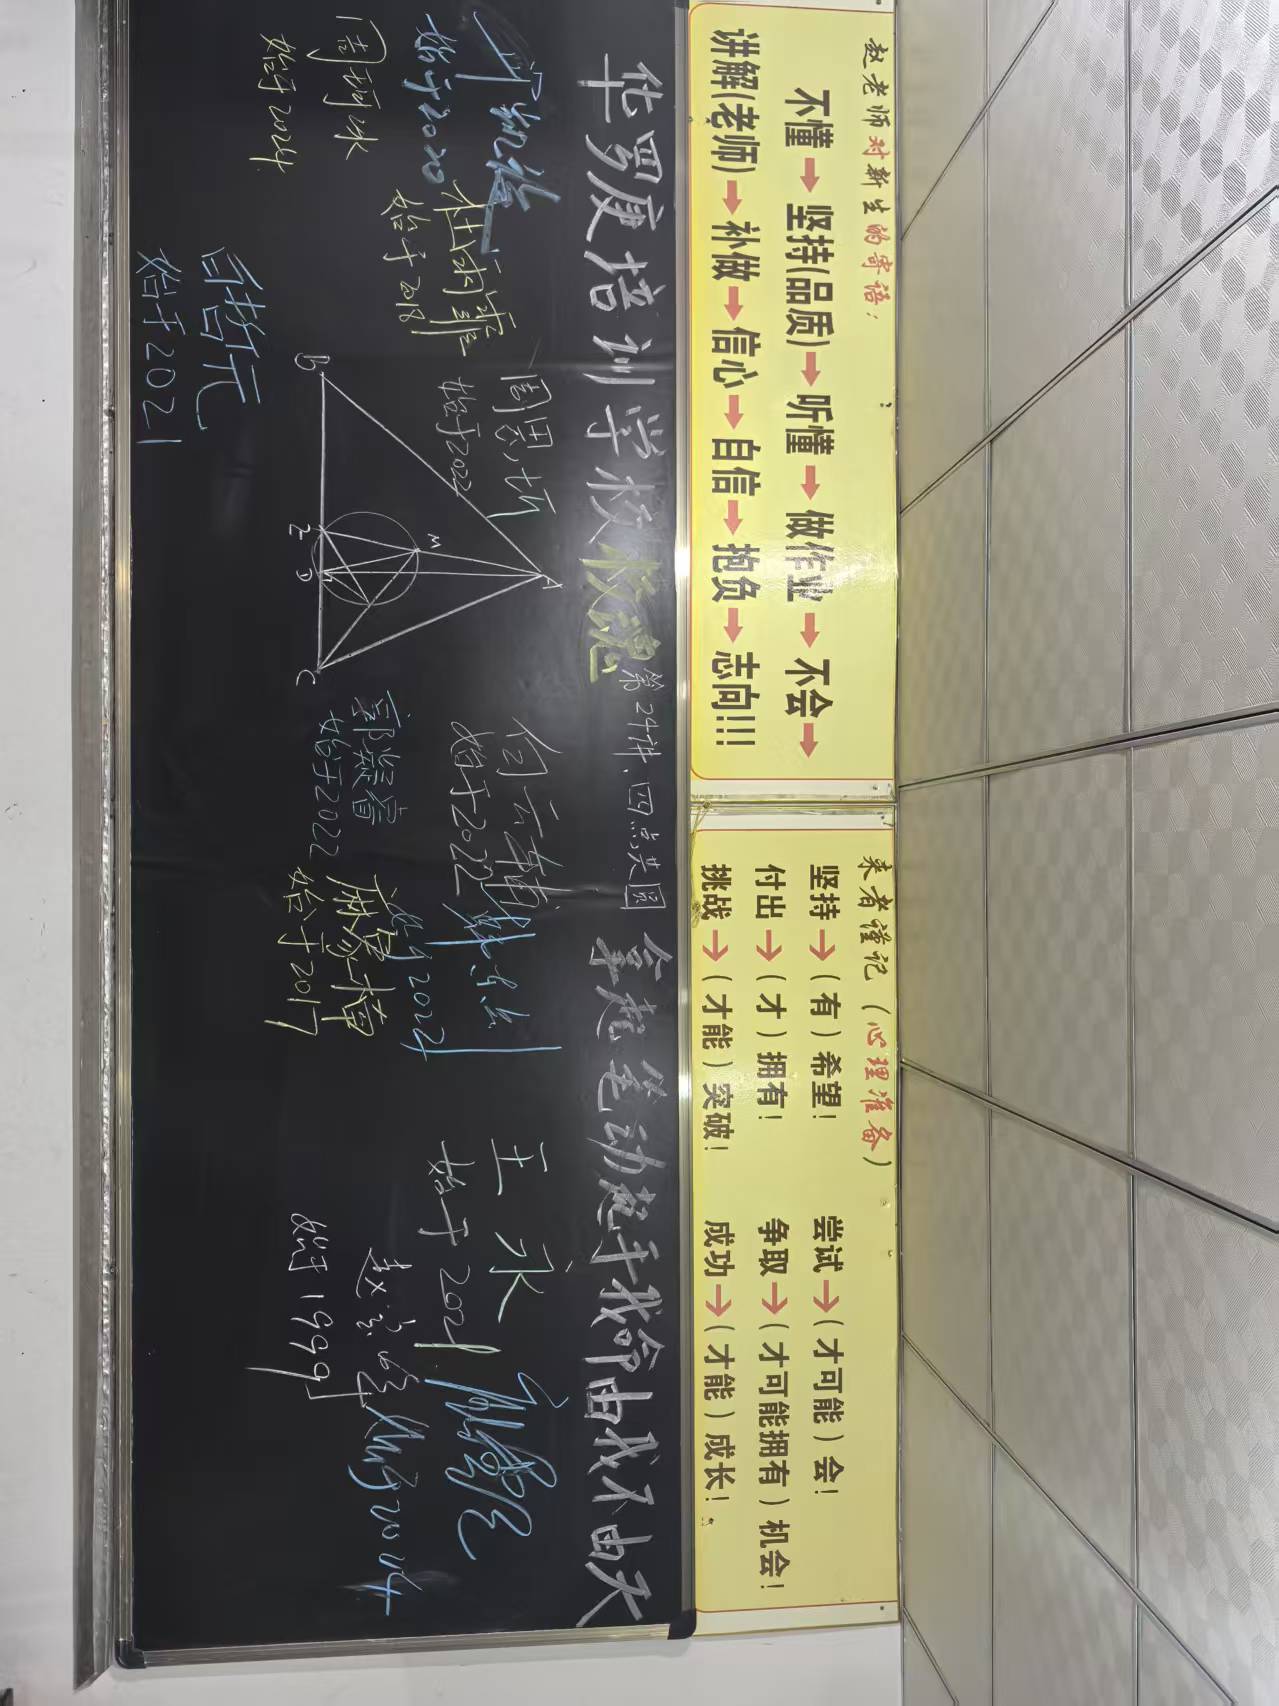 赵老师对新生的寄语：
不懂→坚持(品质)→听懂→做作业→不会→
讲解(老师)→补做→信心→自信→抱负→志向!!!
来者谨记（心理准备）
坚持→（有）希望！ 尝试→（才可能）会！
付出→（才）拥有！ 争取→（才可能拥有）机会！
挑战→（才能）突破！ 成功→（才能）成长！
华罗庚培训学校 校魂 第24讲、四点共圆 拿起笔动起手我命由我不由天
始于2020
始于2024
杜雨霏
始于2018
始于2021
周思
始于2022
A
B
C
D
E
M
始于2022
郭紫睿
始于2022
始于2022
始于2017
王永
始于2021
始于1999
始于2014